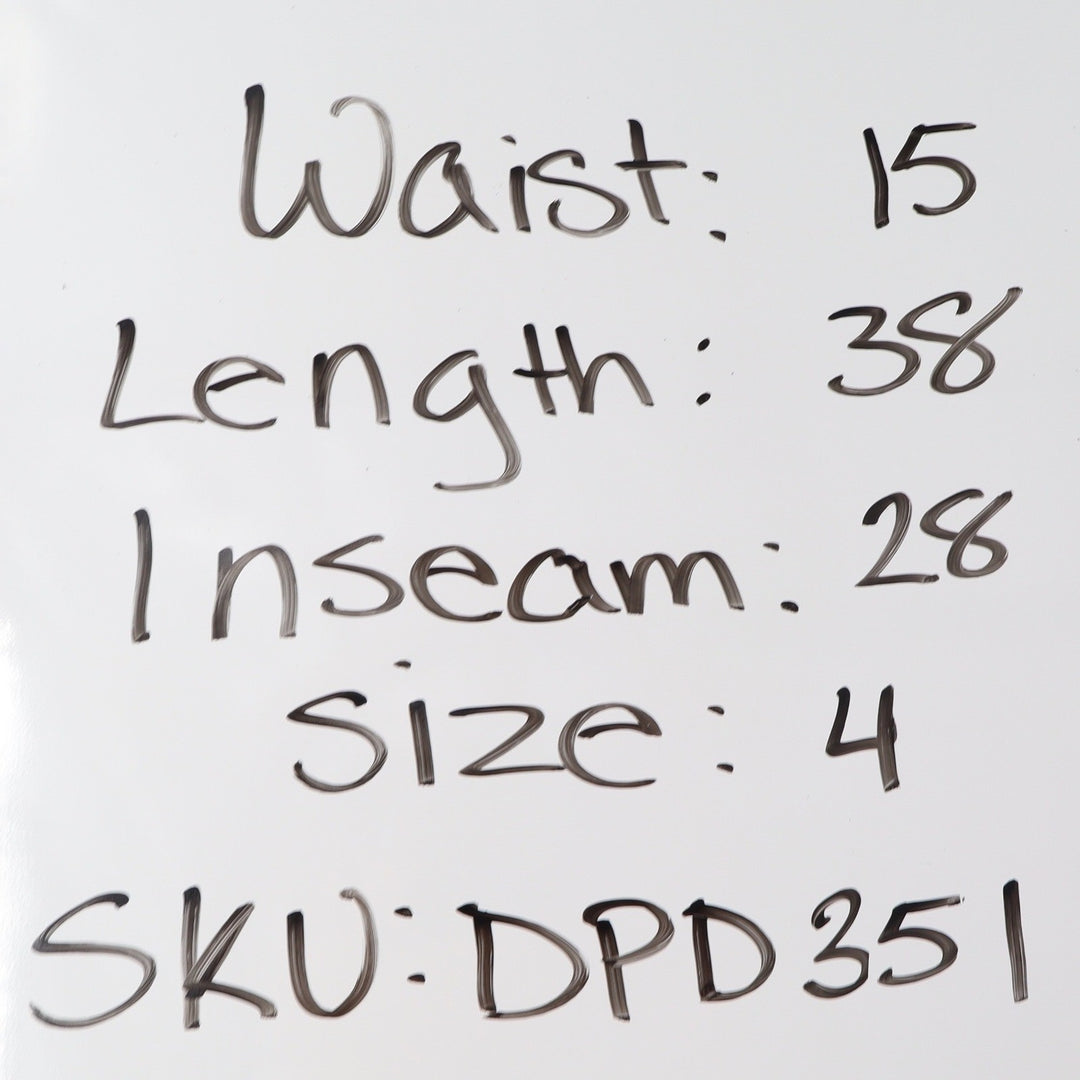 Waist: 15
Length: 38
Inseam: 28
Size: 4
SKU: DPD351